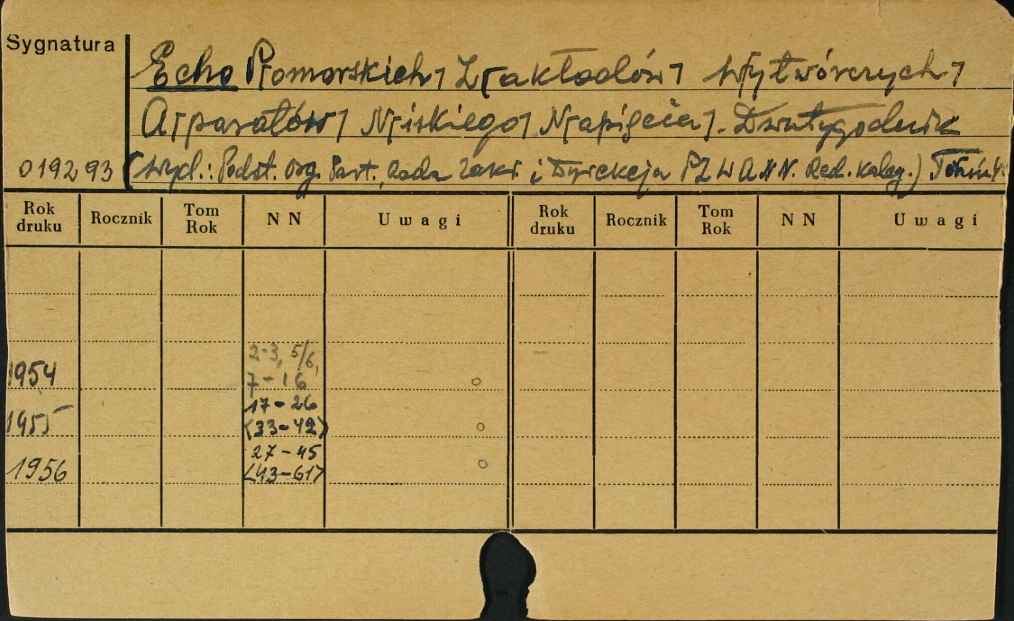 Sygnatura
Echo P[omorskich] Z[akładów] Wytwórczych]
A[paratów] N[iskiego] N[apięcia]. Dwutygodnik
019293 (Wyd.: Podst. Org. Part., Rada Zakł. i Dyrekcja PZWANN. Red. Koleg.) Toruń
Rok druku Rocznik Tom Rok NN Uwagi Rok druku Rocznik Tom Rok NN Uwagi
2-3, 5/6,
1954 7-16
17-26
1955 <33-42>
27-45
1956 <43-61>